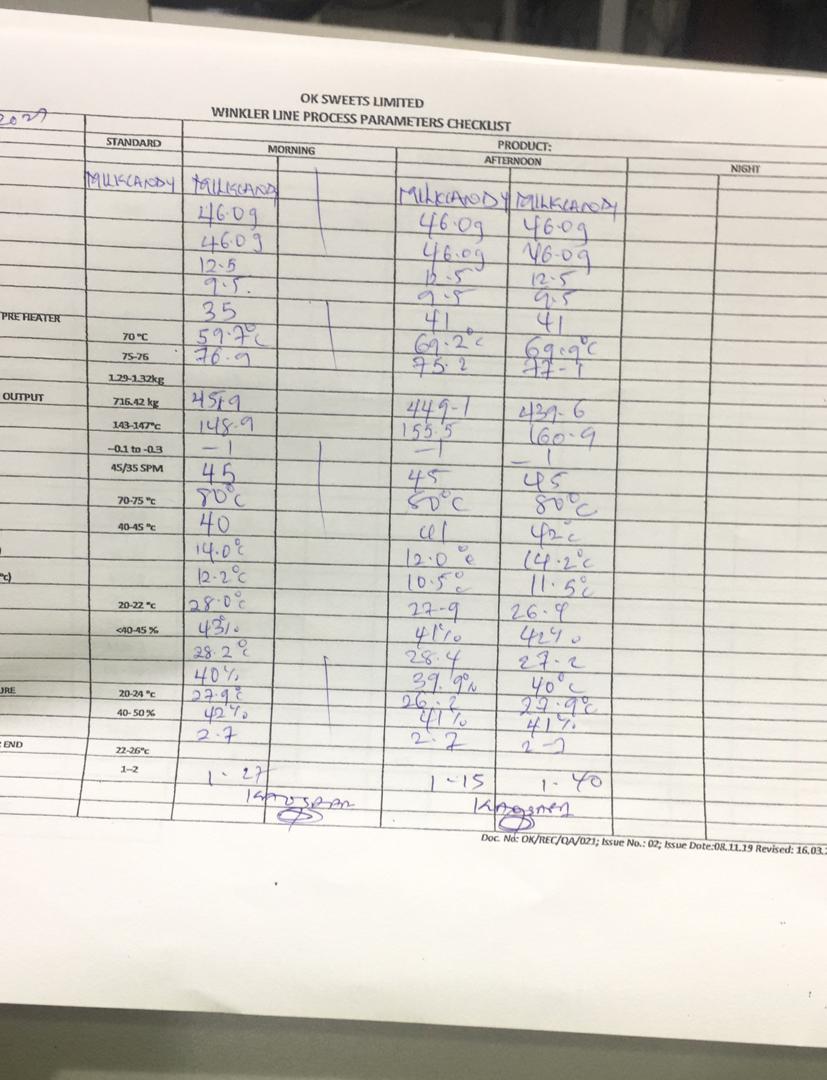 OK SWEETS LIMITED
WINKLER LINE PROCESS PARAMETERS CHECKLIST
PRODUCT:
STANDARD MORNING AFTERNOON NIGHT
MILKCANDY MILKCAND MILKCANDY MILKCANDY
46.0g 46.0g 46.0g
46.0g 46.0g 46.0g
12.5 12.5 12.5
9.5. 9.5 9.5
35 41 41
PRE HEATER 70 °C 59.7°c 69.2°c 69.9°c
75-76 76.9 75.2 77-1
1.29-1.32kg
OUTPUT 716.42 kg 449-1 439.6
143-147°c 148.9 155.5 160.9
-0.1 to -0.3 -1 -1 -1
45/35 SPM 45 45 45
70-75 °c 80°c 80°c 80°c
40-45 °c 40 41 42°c
14.0°c 12.0°c 14.2°c
°c) 12.2°c 10.5°c 11.5°c
20-22 °c 28.0°c 27-9 26.9
<40-45 % 43% 41% 42%
28.2°c 28.4 27.2
40% 39.9% 40°c
URE 20-24 °c 27.9°c 26.2 27.9°c
40-50 % 42% 41% 41%
2.7 2.7 2-7
END 22-26°c
1-2 1-27 1-15 1-40
Doc. No: OK/REC/QA/021; Issue No.: 02; Issue Date:08.11.19 Revised: 16.03.